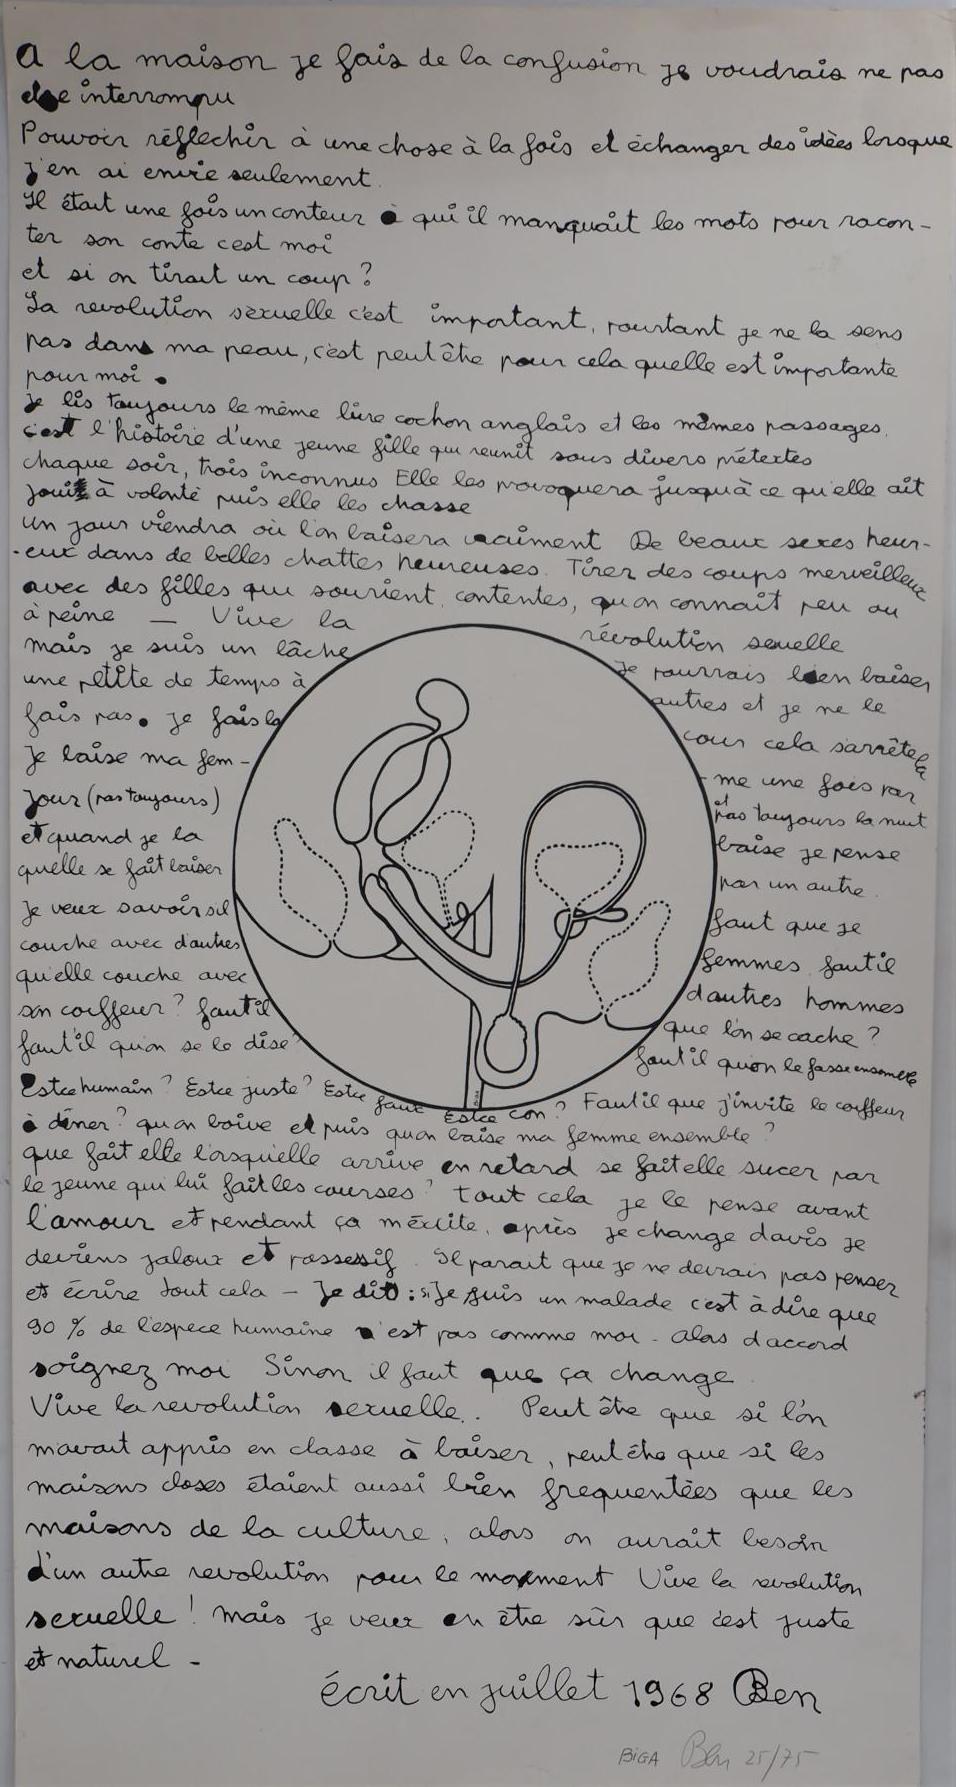 a la maison je fais de la confusion je voudrais ne pas
etre interrompu
Pouvoir réflechir à une chose à la fois et échanger des idées lorsque
j'en ai envie seulement.
Il était une fois un conteur à qui il manquait les mots pour racon-
ter son conte c'est moi
et si on tirait un coup ?
La revolution sexuelle c'est important, pourtant je ne la sens
pas dans ma peau, c'est peut être pour cela quelle est importante
pour moi.
je lis toujours le même livre cochon anglais et les mêmes passages.
c'est l'histoire d'une jeune fille qui reunit sous divers prétextes
chaque soir, trois inconnus Elle les provoquera jusqu'à ce qu'elle ait
joui à volonté puis elle les chasse
un jour viendra où l'on baisera vraiment De beaux sexes heur-
-eux dans de belles chattes heureuses. Tirer des coups merveilleux
avec des filles qui sourient, contentes, qu'on connait peu ou
à peine — Vive la révolution sexuelle
mais je suis un lâche je pourrais bien baiser
une petite de temps à autres et je ne le
fais pas. je fais la cour cela s'arrête là
Je baise ma fem- -me une fois par
jour (pas toujours) et pas toujours la nuit
et quand je la baise je pense
quelle se fait baiser par un autre.
Je veux savoir s'il faut que je
couche avec d'autres femmes, faut il
qu'elle couche avec d'autres hommes
son coiffeur ? faut'il que l'on se cache ?
faut'il qu'on se le dise ? faut il qu'on le fasse ensemble
Estce humain ? Estce juste ? Estce faux Estce con ? Faut'il que j'invite le coiffeur
à diner ? qu'on boive et puis qu'on baise ma femme ensemble ?
que fait elle lorsqu'elle arrive en retard se fait elle sucer par
le jeune qui lui fait les courses ? tout cela je le pense avant
l'amour et pendant ça m'éxcite, après je change d'avis je
deviens jaloux et possessif. Il parait que je ne devrais pas penser
et écrire tout cela – Je dit : si je suis un malade c'est à dire que
90 % de l'espece humaine n'est pas commme moi - alors d'accord
soignez moi Sinon il faut que ça change.
Vive la revolution sexuelle. Peut être que si l'on
m'avait appris en classe à baiser, peut être que si les
maisons closes étaient aussi bien frequentées que les
maisons de la culture, alors on aurait besoin
d'un autre revolution pour le moment Vive la revolution
sexuelle ! mais je veux en être sûr que c'est juste
et naturel -
écrit en juillet 1968 Ben
BIGA Ben 25/75